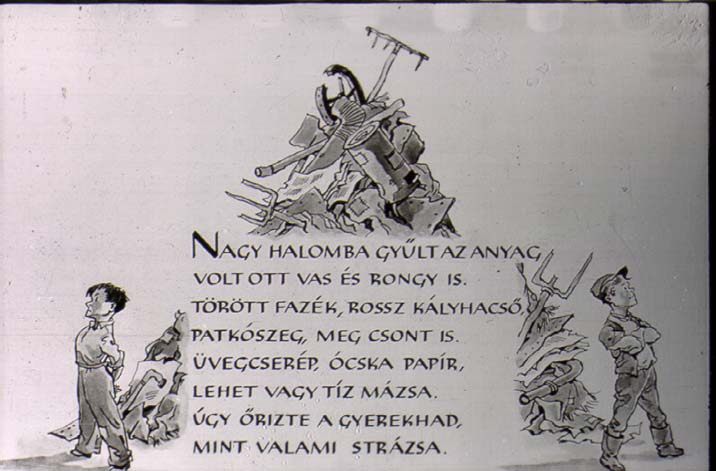 NAGY HALOMBA GYŰLT AZ ANYAG
VOLT OTT VAS ÉS RONGY IS.
TÖRÖTT FAZÉK, ROSSZ KÁLYHACSŐ,
PATKÓSZEG, MEG CSONT IS.
ÜVEGCSERÉP, ÓCSKA PAPÍR,
LEHET VAGY TÍZ MÁZSA.
ÚGY ŐRIZTE A GYEREKHAD,
MINT VALAMI STRÁZSA.